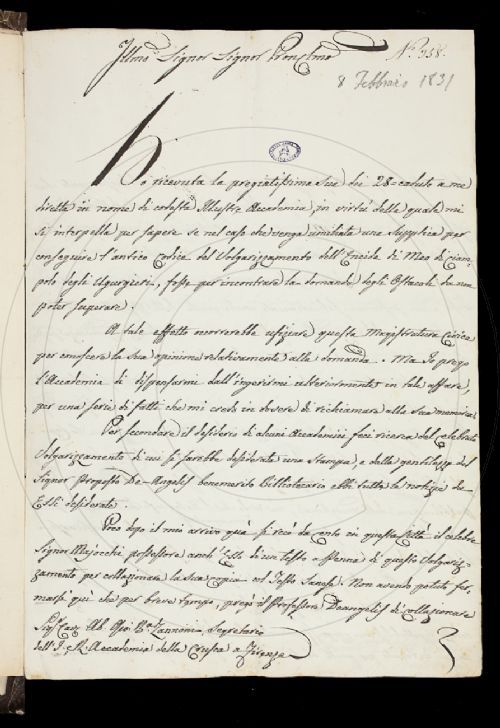 Illmo Signor Signor Pron Clmo
N.º 358.
8 Febbraio 1831
Ho ricevuta la pregiatissima sua dei 28 = caduto a me
diretta in nome di codesta Illustre Accademia, in virtù della quale mi
si interpella per sapere se nel caso che venga umiliata una supplica per
conseguire l'antico Codice del Volgarizzamento dell'Eneide di Meo di Ciam-
polo degli Ugurgieri, fosse per incontrare la domanda degli Ostacoli da non
poter superare.
A tale effetto occorrerebbe ufiziare questa Magistratura Civica
per conoscere la sua opinione relativamente alla domanda. Ma Io prego
l'Accademia di dispensarmi dall'ingerirmi ulteriormente in tale affare,
per una serie di fatti che mi credo in dovere di richiamare alla sua memoria.
Per secondare il desiderio di alcuni Accademici feci ricerca del celebrato
Volgarizzamento di cui si sarebbe desiderata una stampa, e dalla gentilezza del
Signor Proposto De-Angelis benemerito Bibliotecario ebbi tutte le notizie da
Essi desiderate.
Poco dopo il mio arrivo quà si recò da Conto in questa Città il celebre
Signor Majocchi possessore anch'Esso di un testo a penna di questo Volgariz-
zamento per collazionare la sua copia col Testo Sanese. Non avendo potuto fer-
marsi quì che per breve tempo, pregò il Professore Deangelis di collazionare
Sigr Cav. Ab. Gio Bta Zannoni Segretario
dell'I. e R. Accademia della Crusca a Firenze